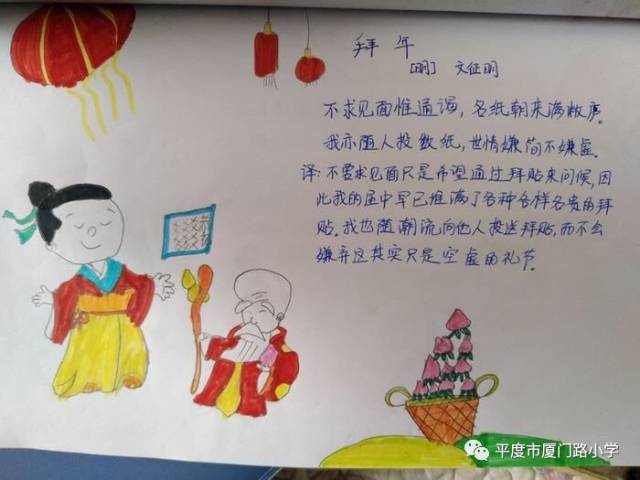 拜年
[明] 文征明
不求见面惟通谒，名纸朝来满敝庐。
我亦随人投数纸，世情嫌简不嫌虚。
译：不要求见面只是希望通过拜贴来问候，因
此我的屋中早已堆满了各种各样名贵的拜
贴。我也随潮流向他人投送拜贴，而不会
嫌弃这其实只是空虚的礼节。
平度市厦门路小学